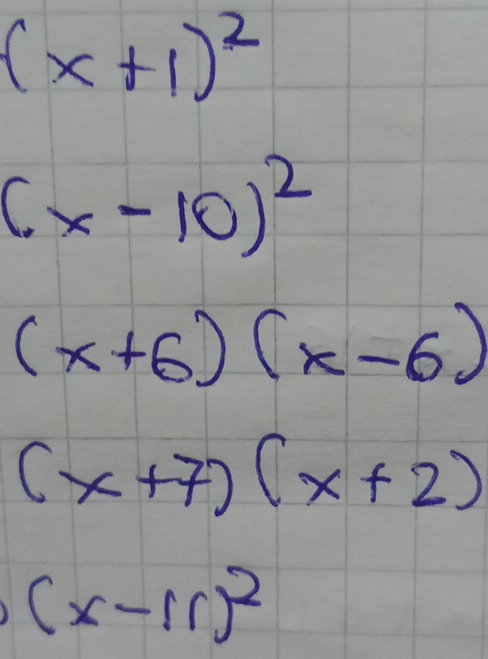 (x+1)²
(x-10)²
(x+6)(x-6)
(x+7)(x+2)
(x-11)²